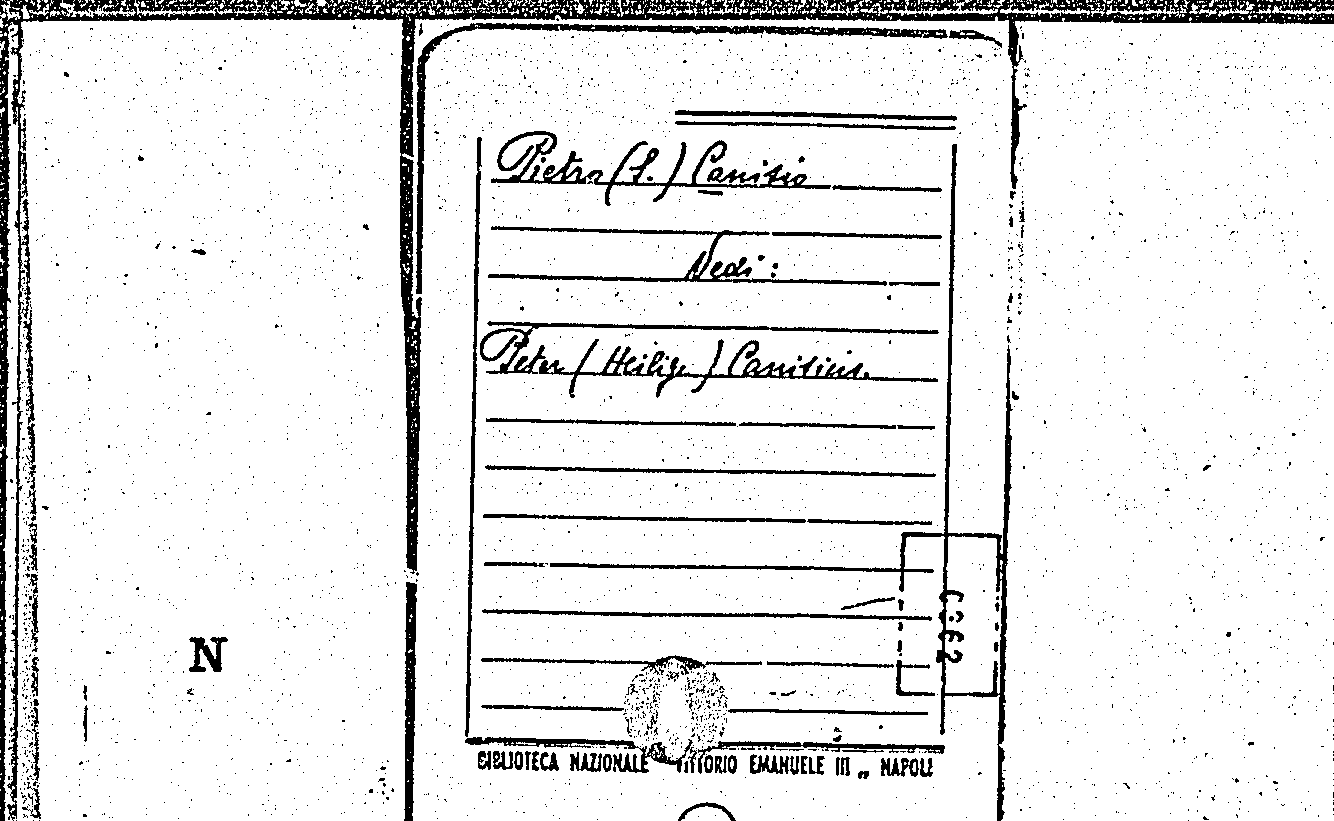 Pietro (S.) Canisio
Vedi:
Peter (Heilige) Canisius.
N
BIBLIOTECA NAZIONALE VITTORIO EMANUELE III „ NAPOLI